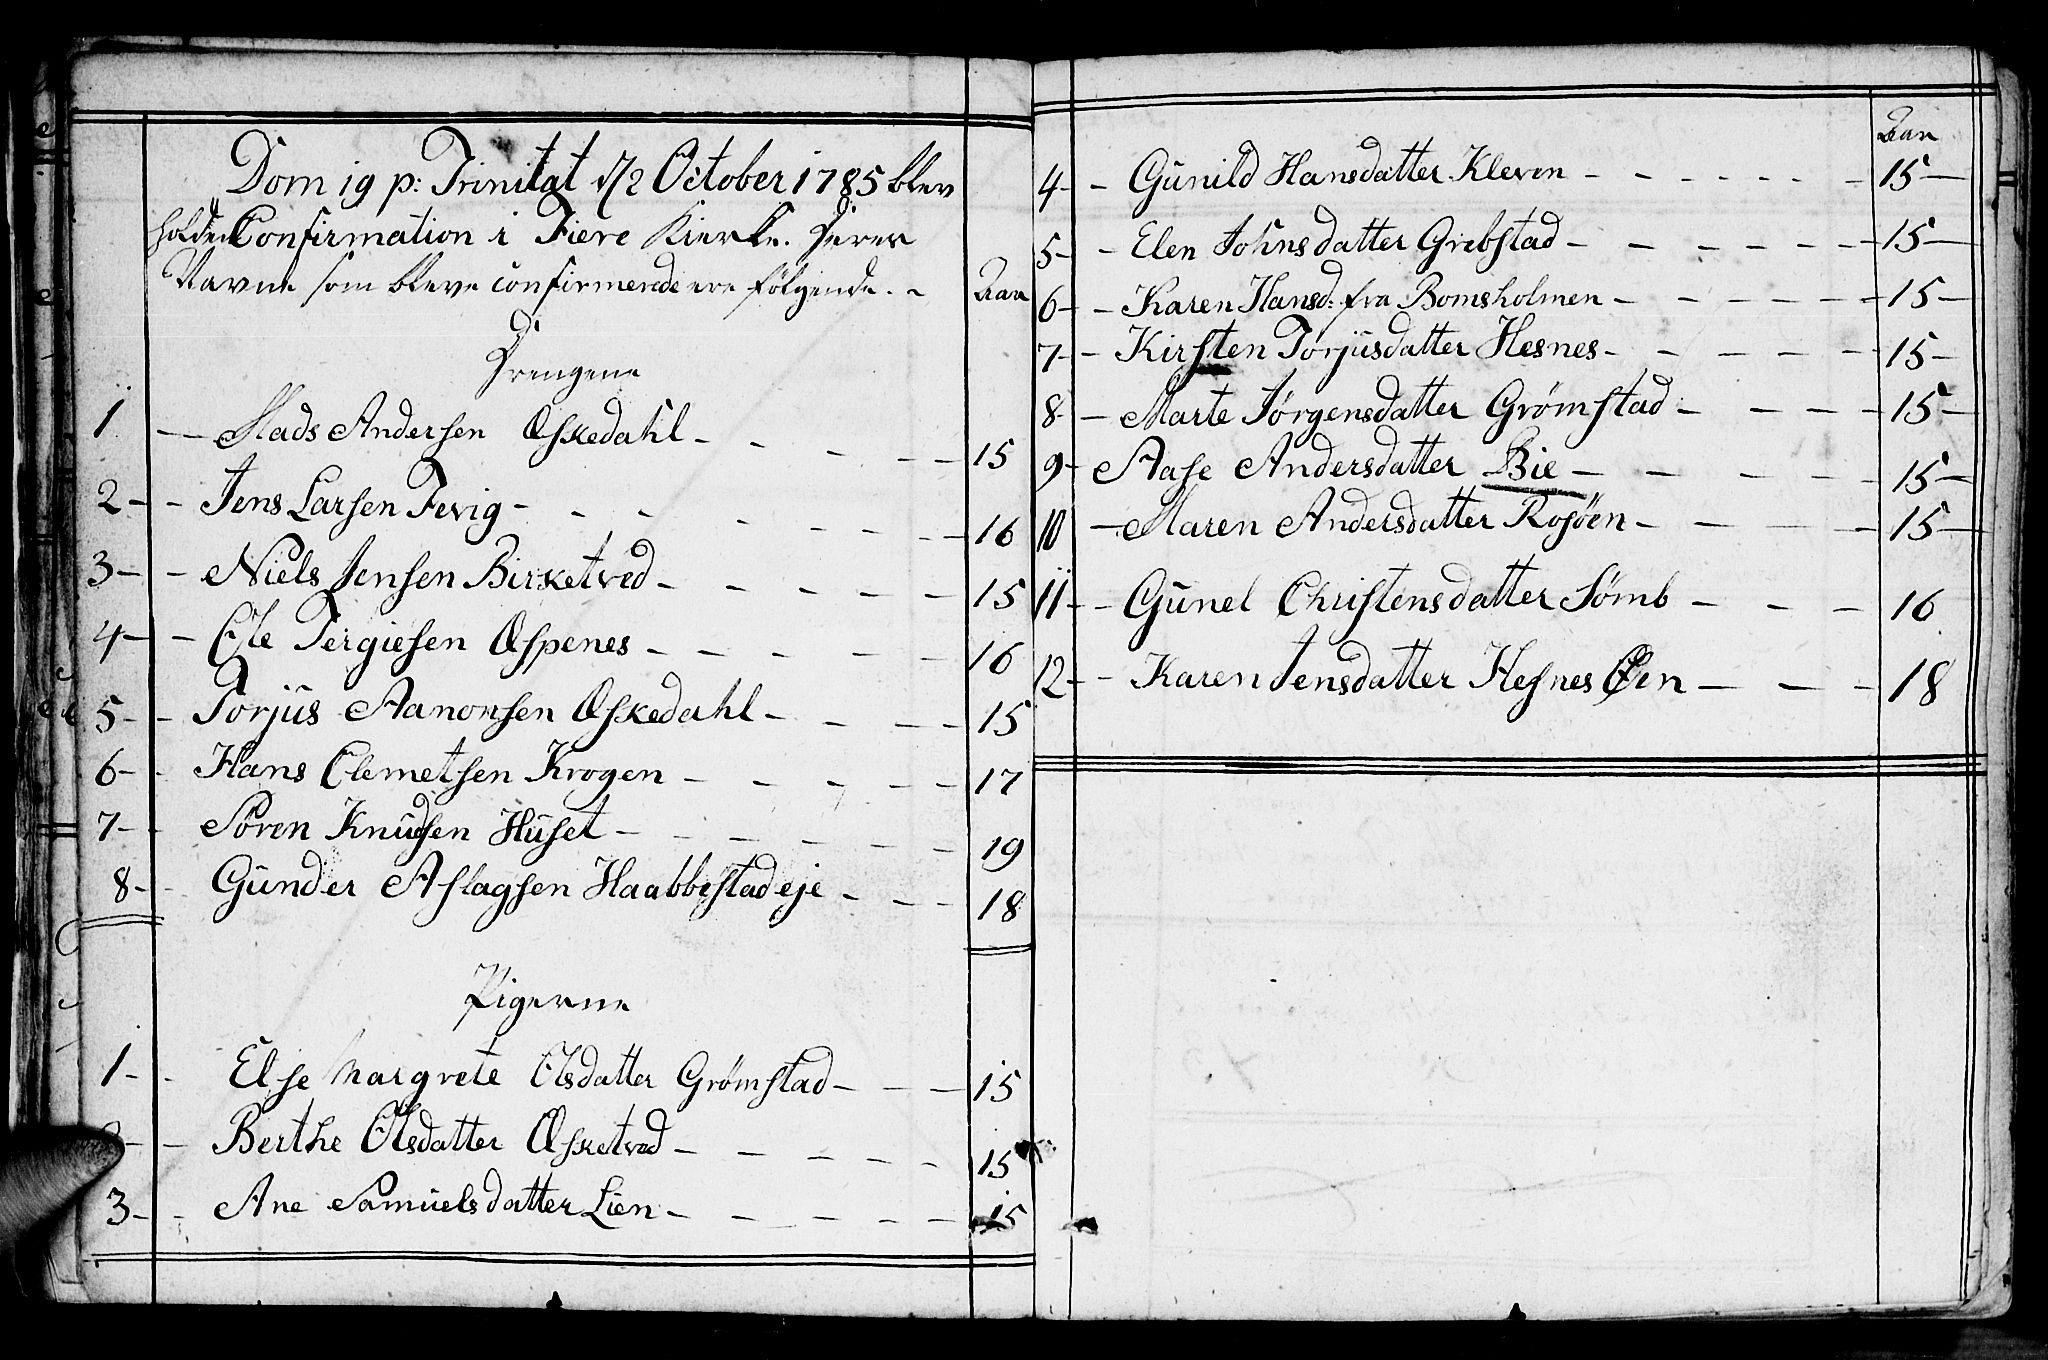 Dom 19 p: Trinitat d/2 October 1785 blev
holden Confirmation i Fiere Kierke. Deres
Navne som bleve confirmerede ere følgende. -
Aar
Drengene
1 - Mads Andersen Æskedahl - 15
2 - Jens Larsen Fevig - 16
3 - Niels Jensen Birketved - 15
4 - Ole Tergiesen Æspenes - 16
5 - Torjus Aanonsen Æskedahl - 15
6 - Hans Clemetsen Krogen - 17
7 - Søren Knudsen Huset - 19
8 - Gunder Aslagsen Haabbestad eje - 18
Pigerne
1 - Else Margrete Olsdatter Grømstad - 15
- Berthe Olsdatter Æsketved - 15
3 - Ane Samuelsdatter Lien - 15
Aar
4 - Gunild Hansdatter Kleven - 15
5 - Elen Johnsdatter Grebstad - 15
6 - Karen Hansd: fra Bomsholmen - 15
7 - Kirsten Torjusdatter Hesnes - 15
8 - Marte Jørgensdatter Grømstad - 15
9 - Aase Andersdatter Bie - 15
10 - Maren Andersdatter Rosøen - 15
11 - Gunel Christensdatter Sømb - 16
12 - Karen Jensdatter Hesnes Øen - 18